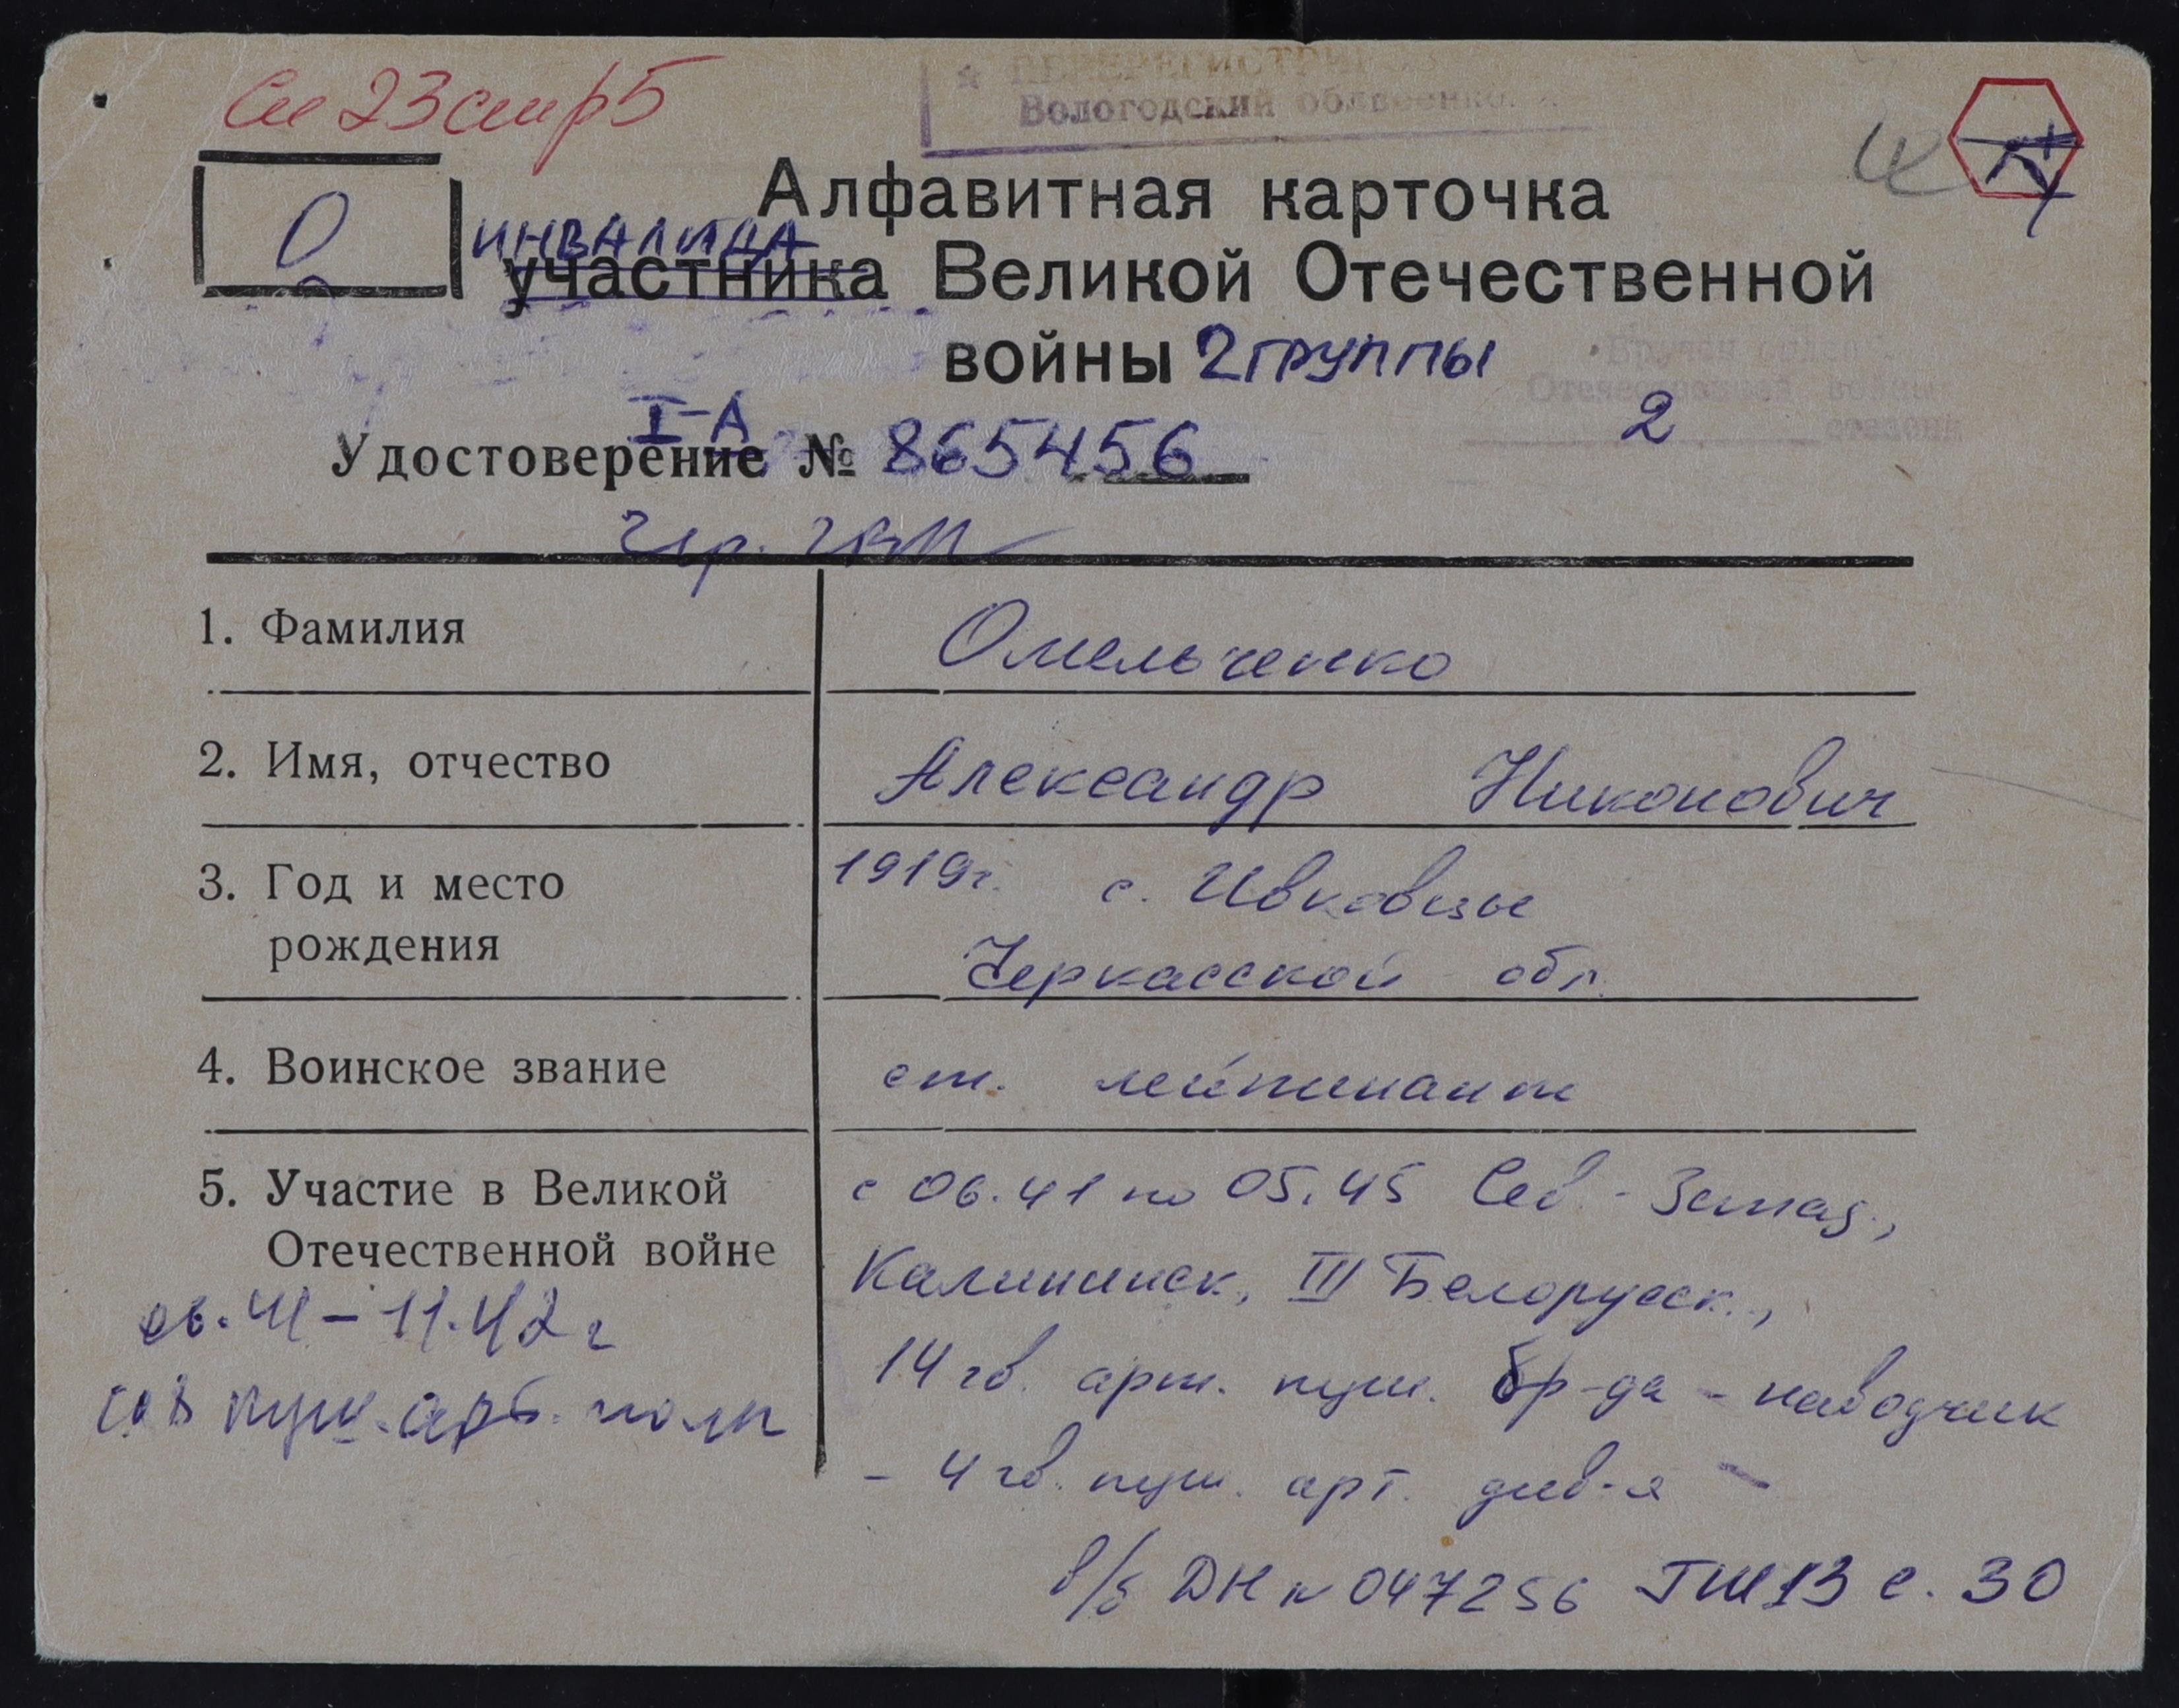 См 23 стр 5
ПЕРЕРЕГИСТРИР
Вологодский облвоенко
О
Алфавитная карточка
ИНВАЛИДА
участника Великой Отечественной
войны 2 группы
Вручен орден
Отечественной войны
2 степени
I-А
Удостоверение № 865456
2 гр.
1. Фамилия Омельченко
2. Имя, отчество Александр Никонович
3. Год и место 1919г. с. Ивковцы
рождения Черкасской обл.
4. Воинское звание ст. лейтенант
5. Участие в Великой с 06.41 по 05.45 Сев-Запад.,
Отечественной войне Калининск, III Белорусск.,
06.41-11.42 г 14 гв. арт. пуш. бр-да - наводчик
пуш. арт. полк - 4 гв. пуш. арт. див-я -
в/б ДН № 047256 ГШ 13 с. 30